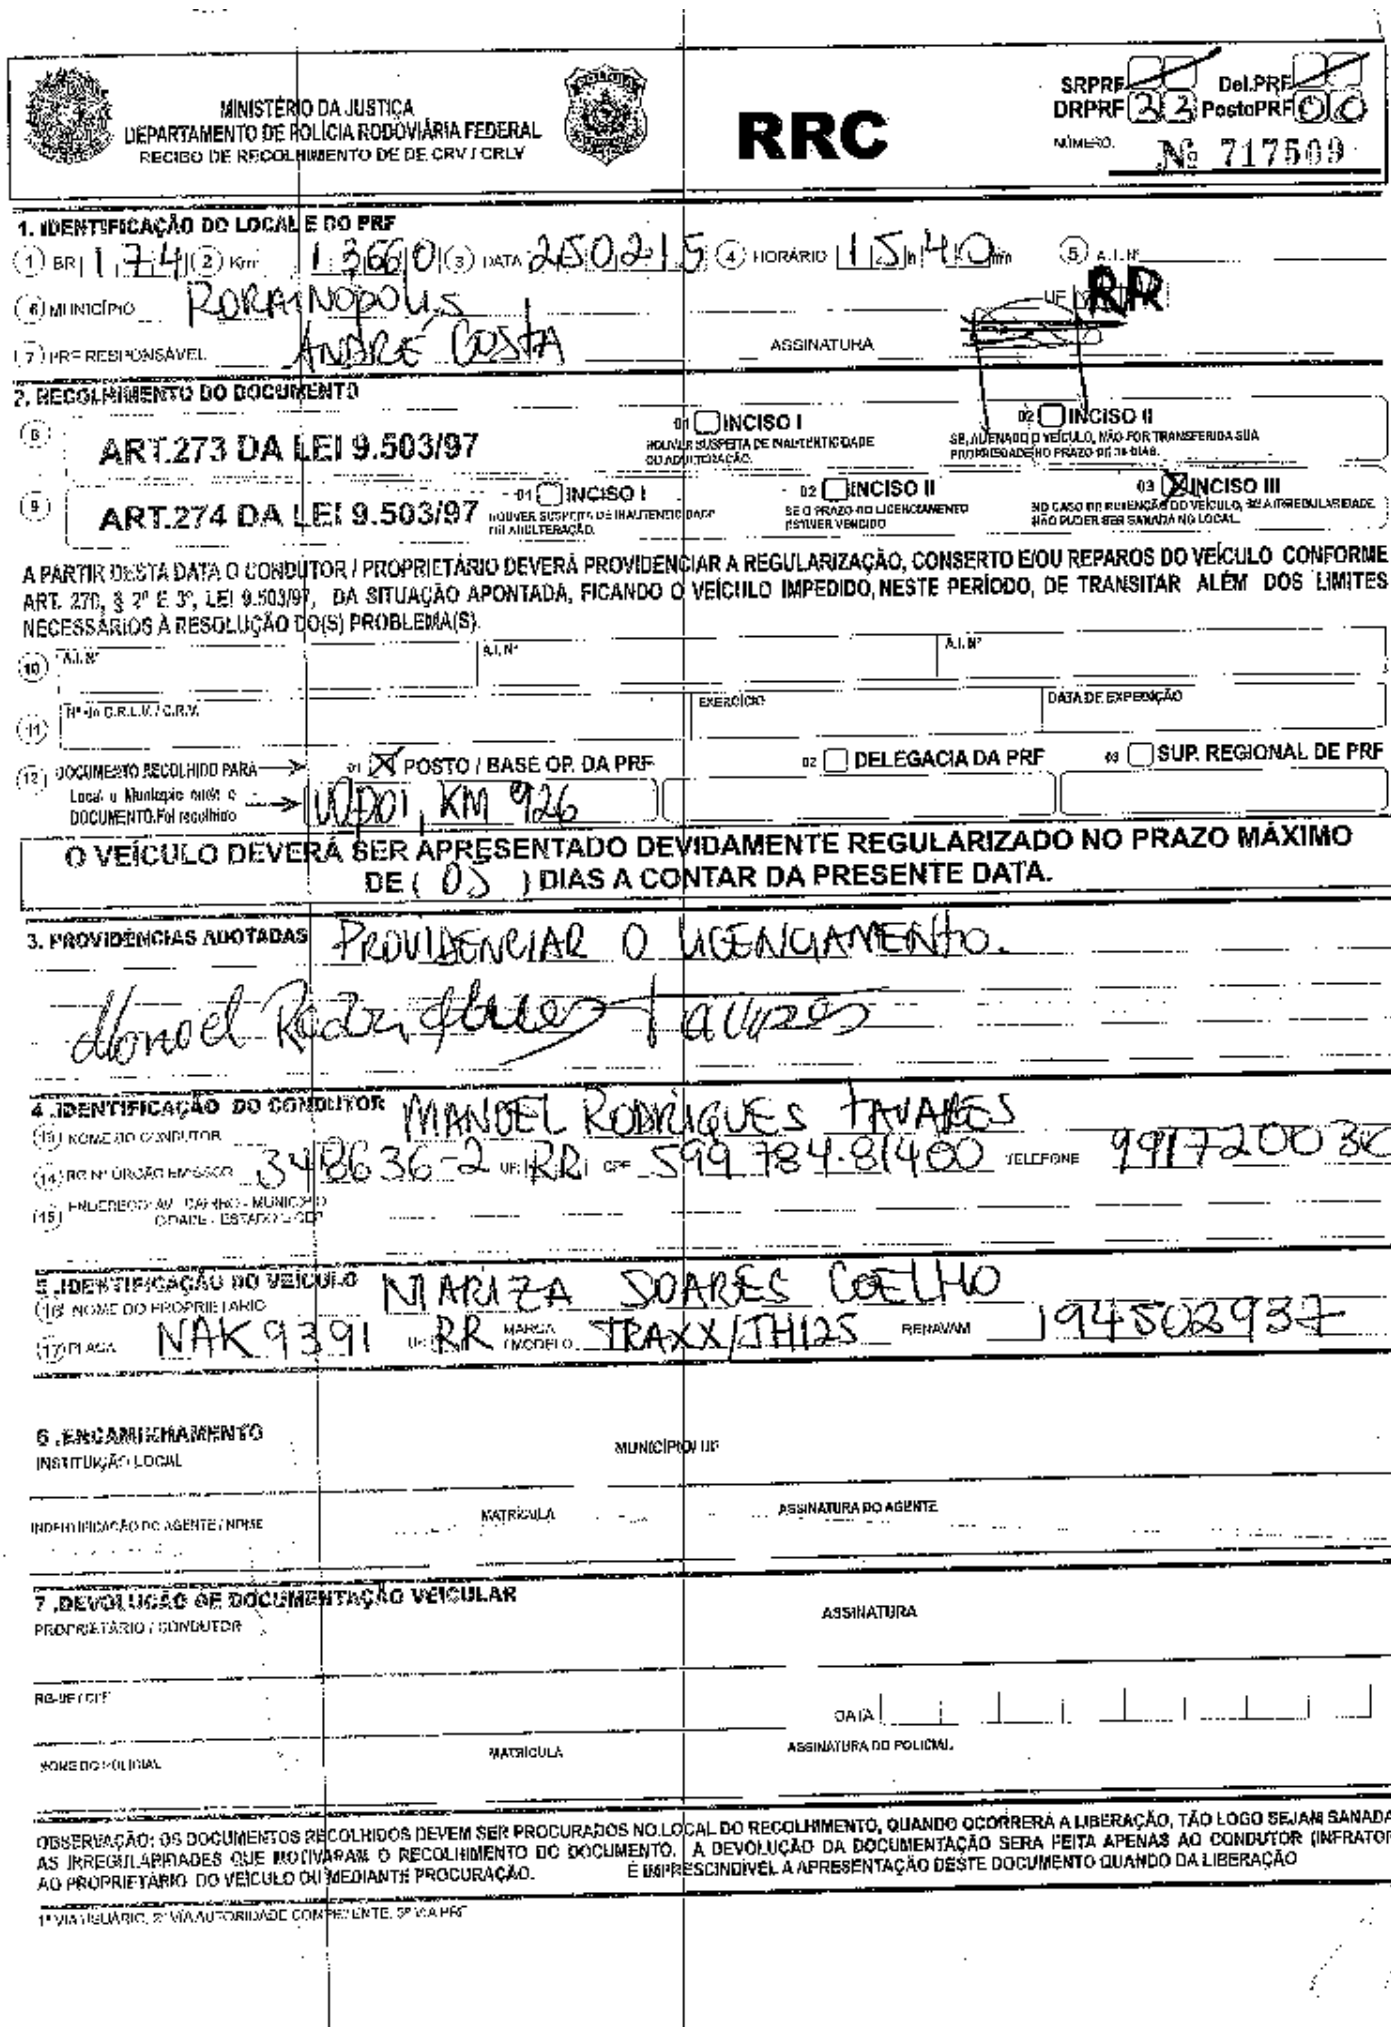 MINISTÉRIO DA JUSTIÇA
DEPARTAMENTO DE POLÍCIA RODOVIÁRIA FEDERAL
RECIBO DE RECOLHIMENTO DE DE CRV / CRLV
RRC
SRPRF Del.PRF
DRPRF 23 PostoPRF 00
NÚMERO. Nº 717509
1. IDENTIFICAÇÃO DO LOCAL E DO PRF
1 BR 174 2 Km 13660 3 DATA 250215 4 HORÁRIO 15 h 40 min 5 A.I. Nº
6 MUNICÍPIO RORAINÓPOLIS UF RR
7 PRF RESPONSÁVEL ANDRÉ COSTA ASSINATURA
2. RECOLHIMENTO DO DOCUMENTO
8 ART.273 DA LEI 9.503/97 01 INCISO I HOUVER SUSPEITA DE INAUTENTICIDADE OU ADULTERAÇÃO. 02 INCISO II SE, ALIENADO O VEÍCULO, NÃO FOR TRANSFERIDA SUA PROPRIEDADE NO PRAZO DE 30 DIAS.
9 ART.274 DA LEI 9.503/97 01 INCISO I HOUVER SUSPEITA DE INAUTENTICIDADE OU ADULTERAÇÃO. 02 INCISO II SE O PRAZO DO LICENCIAMENTO ESTIVER VENCIDO 03 X INCISO III NO CASO DE RETENÇÃO DO VEÍCULO, SE A IRREGULARIDADE NÃO PUDER SER SANADA NO LOCAL.
A PARTIR DESTA DATA O CONDUTOR / PROPRIETÁRIO DEVERÁ PROVIDENCIAR A REGULARIZAÇÃO, CONSERTO E/OU REPAROS DO VEÍCULO CONFORME
ART. 270, § 2º E 3º, LEI 9.503/97, DA SITUAÇÃO APONTADA, FICANDO O VEÍCULO IMPEDIDO, NESTE PERÍODO, DE TRANSITAR ALÉM DOS LIMITES
NECESSÁRIOS À RESOLUÇÃO DO(S) PROBLEMA(S).
10 A.I. Nº A.I. Nº A.I. Nº
11 Nº do C.R.L.V. / C.R.V. EXERCÍCIO DATA DE EXPEDIÇÃO
12 DOCUMENTO RECOLHIDO PARA 01 X POSTO / BASE OP. DA PRF 02 DELEGACIA DA PRF 03 SUP. REGIONAL DE PRF
Local e Município onde o
DOCUMENTO Foi recolhido KM 926
O VEÍCULO DEVERÁ SER APRESENTADO DEVIDAMENTE REGULARIZADO NO PRAZO MÁXIMO
DE ( 05 ) DIAS A CONTAR DA PRESENTE DATA.
3. PROVIDÊNCIAS ADOTADAS PROVIDENCIAR O LICENCIAMENTO.
Manoel Rodrigues Tavares
4 .IDENTIFICAÇÃO DO CONDUTOR
13 NOME DO CONDUTOR MANOEL RODRIGUES TAVARES
14 RG Nº ÓRGÃO EMISSOR 348636-2 UF RR CPF 599 784.81400 TELEFONE 99172003
15 ENDEREÇO: AV - BAIRRO - MUNICÍPIO
CIDADE - ESTADO E CEP
5 .IDENTIFICAÇÃO DO VEÍCULO
16 NOME DO PROPRIETÁRIO MARIZA SOARES COELHO
17 PLACA NAK 9391 UF RR MARCA / MODELO TRAXX/JH125 RENAVAM 194502937
6 .ENCAMINHAMENTO
INSTITUIÇÃO LOCAL MUNICÍPIO/UF
INDENTIFICAÇÃO DO AGENTE / NOME MATRÍCULA ASSINATURA DO AGENTE
7 .DEVOLUÇÃO DE DOCUMENTAÇÃO VEICULAR
PROPRIETÁRIO / CONDUTOR ASSINATURA
RG-UF / CPF DATA
NOME DO POLICIAL MATRÍCULA ASSINATURA DO POLICIAL
OBSERVAÇÃO: OS DOCUMENTOS RECOLHIDOS DEVEM SER PROCURADOS NO LOCAL DO RECOLHIMENTO, QUANDO OCORRERÁ A LIBERAÇÃO, TÃO LOGO SEJAM SANADA
AS IRREGULARIDADES QUE MOTIVARAM O RECOLHIMENTO DO DOCUMENTO. A DEVOLUÇÃO DA DOCUMENTAÇÃO SERA FEITA APENAS AO CONDUTOR (INFRATOR
AO PROPRIETÁRIO DO VEÍCULO OU MEDIANTE PROCURAÇÃO. É IMPRESCINDÍVEL A APRESENTAÇÃO DESTE DOCUMENTO QUANDO DA LIBERAÇÃO
1ª VIA USUÁRIO, 2ª VIA AUTORIDADE COMPETENTE, 3ª VIA PRF